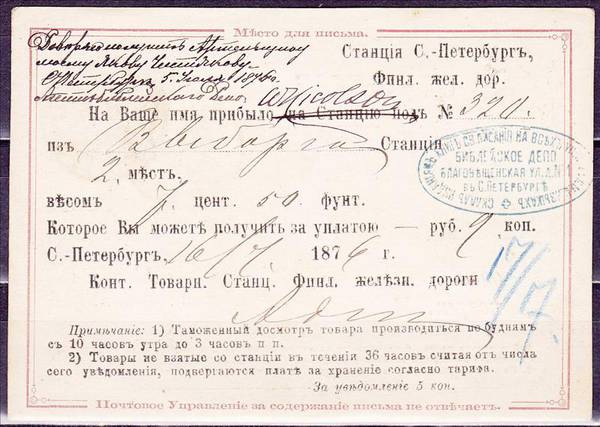 Мѣсто для письма.
Довѣряю получить Артельщику
моему Якову
С Петербургъ 5. Іюля 1876 г
Депо.
WNicolson
Станція С.-Петербургъ,
Финл. жел. дор.
На Ваше имя прибыло на Станцію подъ № 320.
изъ Выборга Станціи
2 мѣст.
вѣсомъ 7 цент. 50 фунт.
Которое Вы можете получить за уплатою — руб. 9 коп.
С.-Петербургъ, 16/7 1876 г.
Конт. Товарн. Станц. Финл. желѣзн. дороги
СКЛАДЪ ИЗДАНІЙ КНИГЪ СВ. ПИСАНІЯ НА ВСѢХЪ ЯЗЫКАХЪ
БИБЛЕЙСКОЕ ДЕПО
БЛАГОВѢЩЕНСКАЯ УЛ. Д. №
ВЪ С. ПЕТЕРБУРГѢ
17/7
Примѣчаніе: 1) Таможенный досмотръ товара производиться по буднямъ
съ 10 часовъ утра до 3 часовъ п п.
2) Товары не взятые со станціи въ теченіи 36 часовъ считая отъ числа
сего увѣдомленія, подвергаются платѣ за храненіе согласно тарифа.
За увѣдомленіе 5 коп.
Почтовое Управленіе за содержаніе письма не отвѣчаетъ.